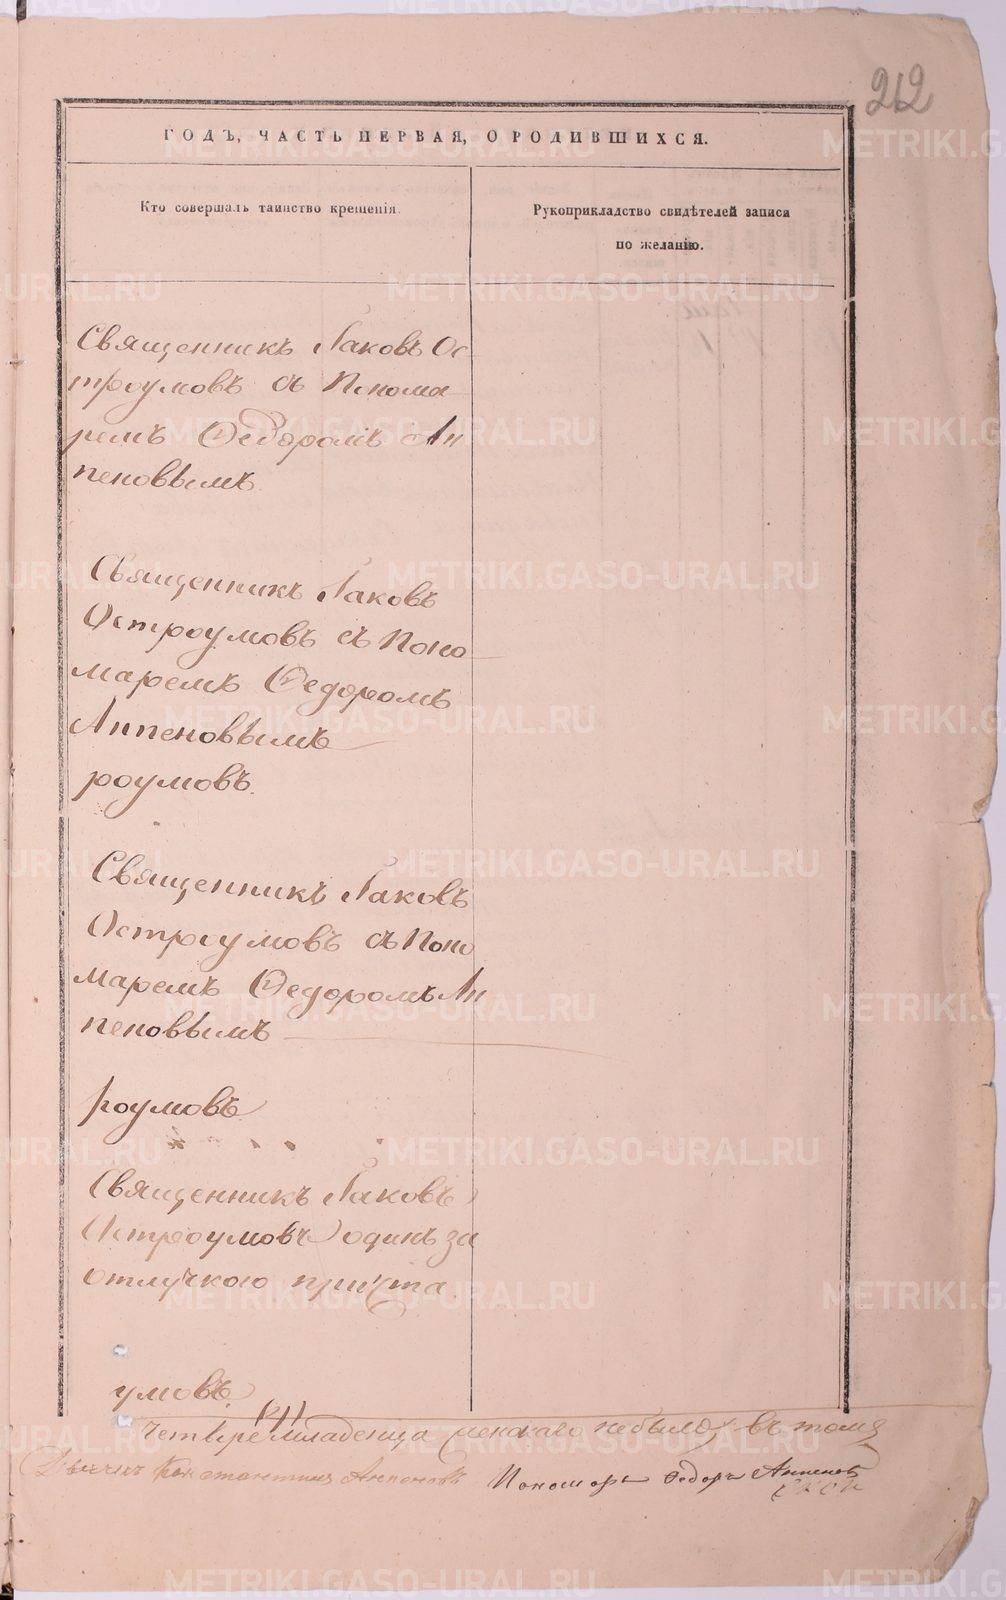 212
ГОДЪ, ЧАСТЬ ПЕРВАЯ, О РОДИВШИХСЯ.
Кто совершалъ таинство крещенія.
Рукоприкладство свидѣтелей записи
по желанію.
Священникъ Іаковъ Ос
троумовъ съ Понома
ремъ Ѳедоромъ Ап
пеновымъ.
Священникъ Іаковъ
Остроумовъ съ Поно
маремъ Ѳедоромъ
Аппеновымъ
роумовъ.
Священникъ Іаковъ
Остроумовъ съ Поно
маремъ Ѳедоромъ Ап
пеновымъ
роумовъ
Священникъ Іаковъ
Остроумовъ одинъ за
отлучкою причта.
умовъ.
четыре младенца небыло въ томъ
Константинъ Аппеновъ
Пономарь Ѳедоръ Аппеновъ
METRIKI.GASO-URAL.RU